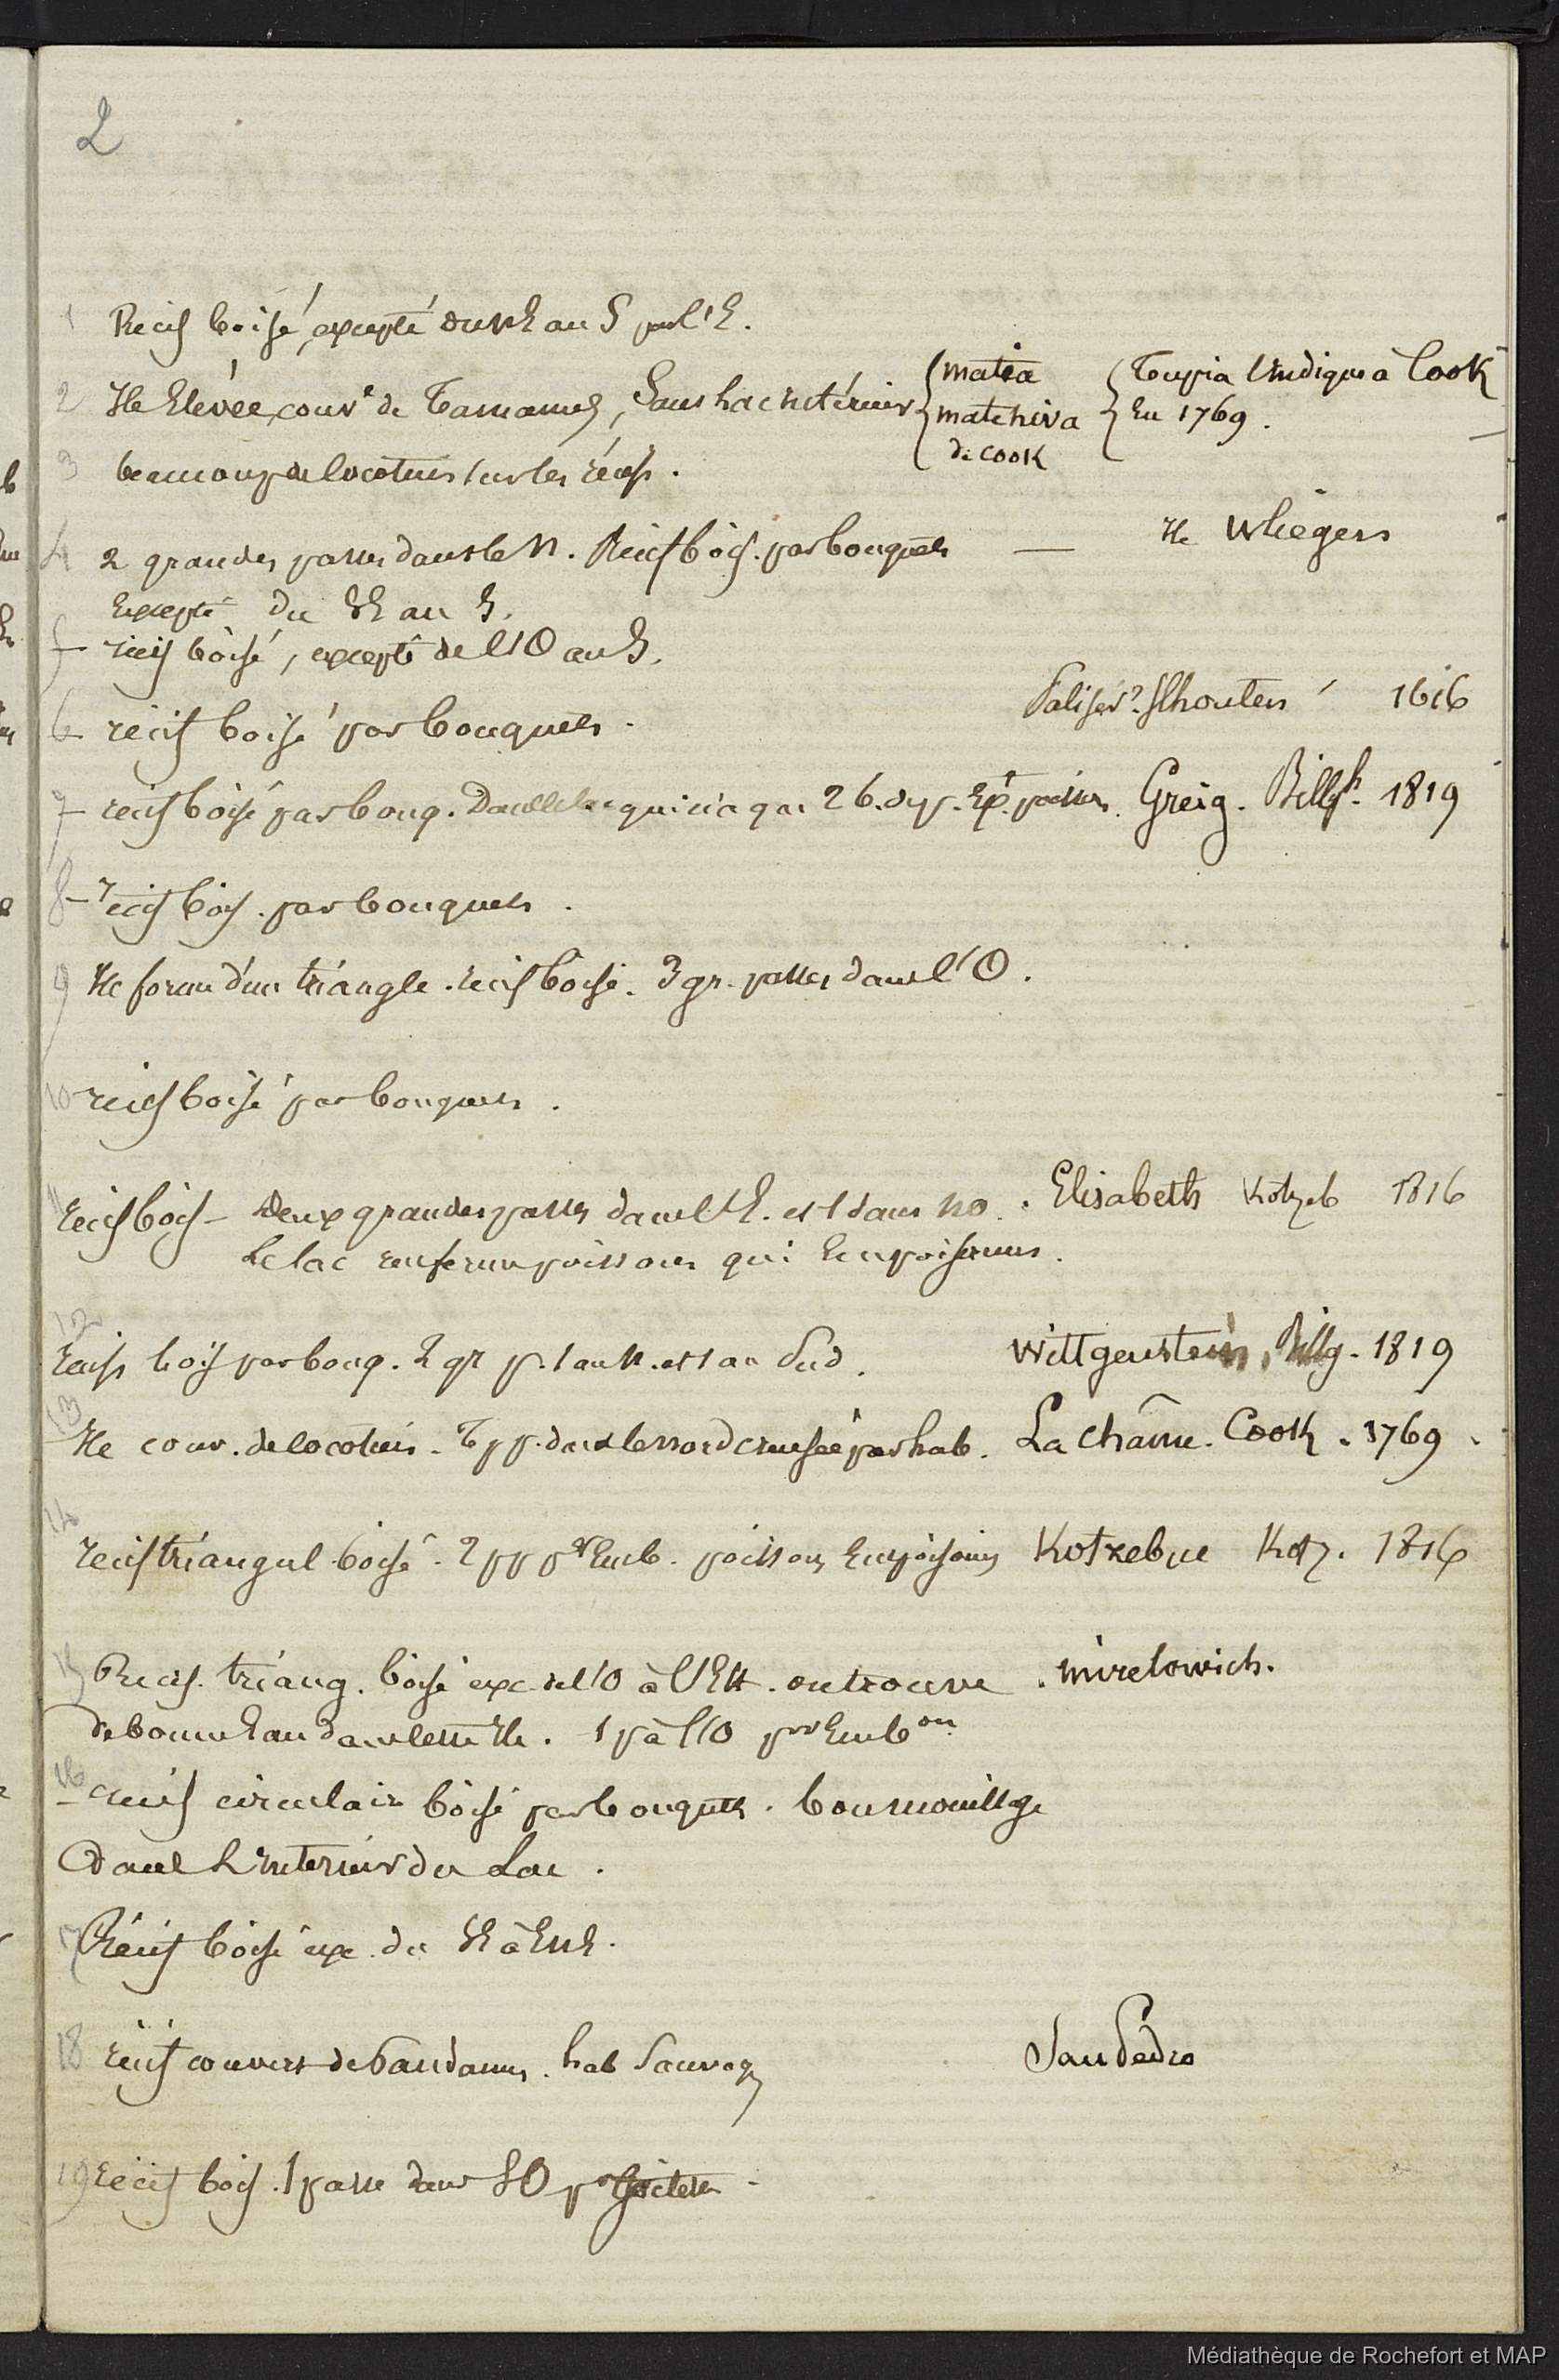 2
1 Récif boisé, excepté du NE au S par l'E.
2 Ile Elevée, couvte de Tamanus, Sans Lac intérieur { matia { Tupia l'indique à Cook
matehiva En 1769.
de Cook
3 beaucoup de cocotiers sur les récifs.
4 2 grandes passes dans le N. Récif bois. par bouquets — Ile Wliegers
Excepté du SE au S.
5 récif boisé, excepté de l'O au S.
6 récif boisé par bouquets. Paliser? Shouten 1616
7 récif boisé par bouq. qui n'a que 26. Greig. Billgh. 1819
8 récif bois. par bouquets.
9 Ile forme d'un triangle. récif boisé. 3 gr. passes dans l'O.
10 récif boisé par bouquets.
11 récif bois — Deux grandes passes dans l'E. et 1 dans NO. Elisabeth Kotzeb 1816
Le lac renferme poissons qui Empoisonnes.
12 Récifs bois par bouq. 2 gr p. 1 au N. et 1 au Sud. Wittgenstein, Billg. 1819
13 Ile couv. de cocotiers. T p p. dans le nord creusée par hab. La Chaîne. Cook. 1769.
14 récif triangul. boisé. 2 p p pr Emb. poissons Empoisonn Kotzebue Kotz. 1816
15 Récif. triang. boisé exc. de l'O à l'Est. on trouve . mirelowich.
de bonne Eau dans cette Ile. 1 p à l'O pour Embon
16 récif circulaire boisé par bouquets. bon mouillage
Dans L'interieur du Lac.
17 Récif boisé exc. du SE à ENE.
18 récif couvert de Pandanus. hab Sauvages San Pédro
19 récif bois. 1 passe dans SO pr Goelette.
Médiathèque de Rochefort et MAP